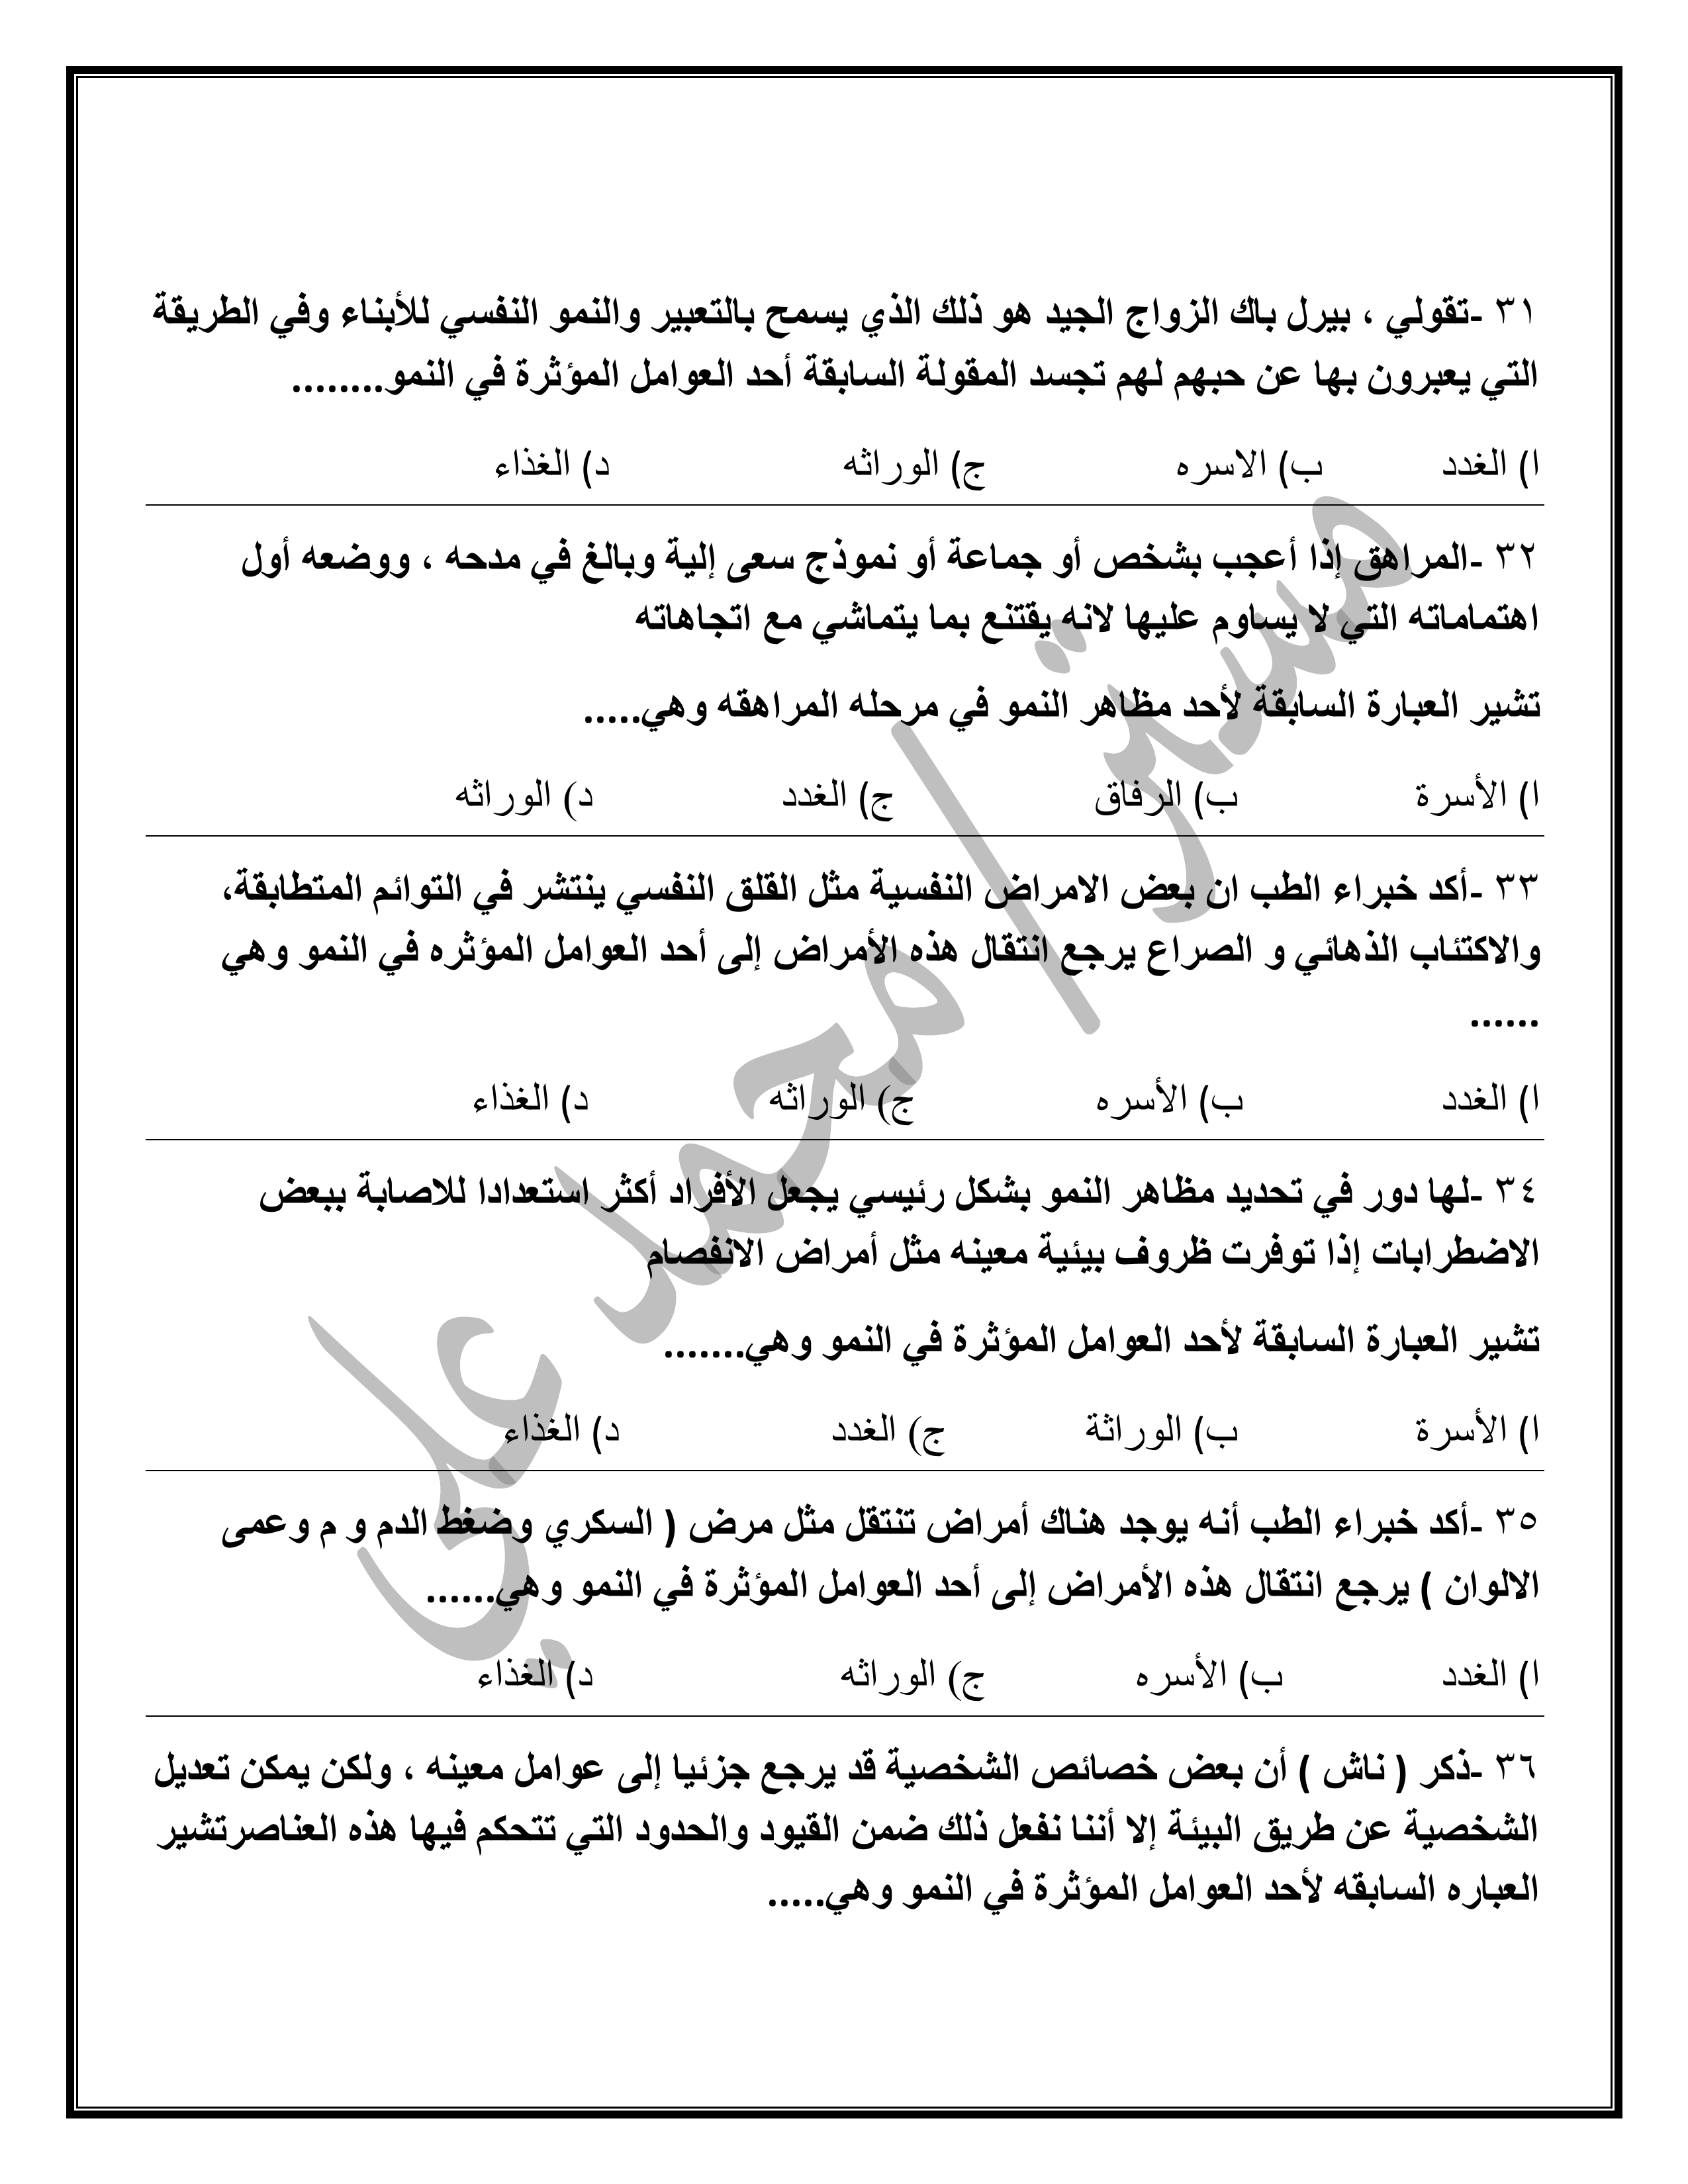 ٣١ -تقولي ، بيرل باك الزواج الجيد هو ذلك الذي يسمح بالتعبير والنمو النفسي للأبناء وفي الطريقة
التي يعبرون بها عن حبهم لهم تجسد المقولة السابقة أحد العوامل المؤثرة في النمو........
ا) الغدد ب) الاسره ج) الوراثه د) الغذاء
٣٢ -المراهق إذا أعجب بشخص أو جماعة أو نموذج سعى إلية وبالغ في مدحه ، ووضعه أول
اهتماماته التي لا يساوم عليها لانه يقتنع بما يتماشي مع اتجاهاته
تشير العبارة السابقة لأحد مظاهر النمو في مرحله المراهقه وهي.....
ا) الأسرة ب) الرفاق ج) الغدد د) الوراثه
٣٣ -أكد خبراء الطب ان بعض الامراض النفسية مثل القلق النفسي ينتشر في التوائم المتطابقة،
والاكتئاب الذهائي و الصراع يرجع انتقال هذه الأمراض إلى أحد العوامل المؤثره في النمو وهي
......
ا) الغدد ب) الأسره ج) الوراثه د) الغذاء
٣٤ -لها دور في تحديد مظاهر النمو بشكل رئيسي يجعل الأفراد أكثر استعدادا للاصابة ببعض
الاضطرابات إذا توفرت ظروف بيئية معينه مثل أمراض الانفصام
تشير العبارة السابقة لأحد العوامل المؤثرة في النمو وهي.......
ا) الأسرة ب) الوراثة ج) الغدد د) الغذاء
٣٥ -أكد خبراء الطب أنه يوجد هناك أمراض تنتقل مثل مرض ( السكري وضغط الدم و م وعمى
الالوان ) يرجع انتقال هذه الأمراض إلى أحد العوامل المؤثرة في النمو وهي......
ا) الغدد ب) الأسره ج) الوراثه د) الغذاء
٣٦ -ذكر ( ناش ) أن بعض خصائص الشخصية قد يرجع جزئيا إلى عوامل معينه ، ولكن يمكن تعديل
الشخصية عن طريق البيئة إلا أننا نفعل ذلك ضمن القيود والحدود التي تتحكم فيها هذه العناصرتشير
العباره السابقه لأحد العوامل المؤثرة في النمو وهي.....
مستر/محمد علي